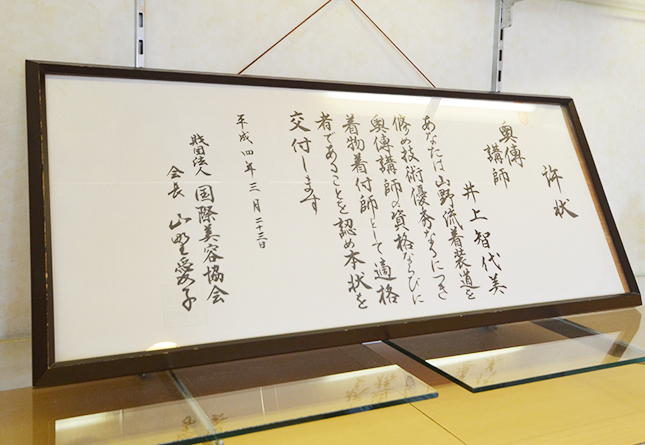 許状
奥傳
講師
井上智代美
あなたは山野流着装道を
修め技術優秀なるにつき
奥傳講師の資格ならびに
着物着付師として適格
者であることを認め本状を
交付します
平成四年三月二十三日
財団法人 国際美容協会
会長 山野愛子